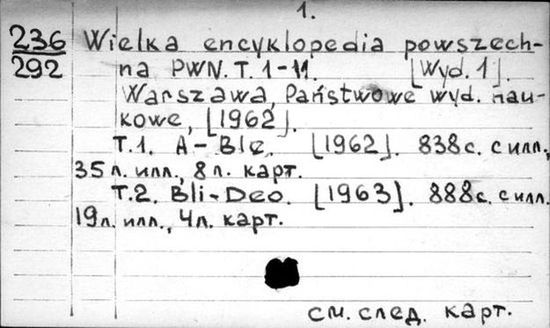 1.
236 Wielka encyklopedia powszech-
292 na PWN. T. 1-11. [Wyd. 1].
Warszawa, Państwowe wyd. nau-
kowe, [1962].
T.1. A-Ble. [1962]. 838с. с илл.,
35л. илл., 8л. карт.
T.2. Bli-Deo. [1963]. 888с. с илл.
19л. илл., 4л. карт.
см. след. карт.